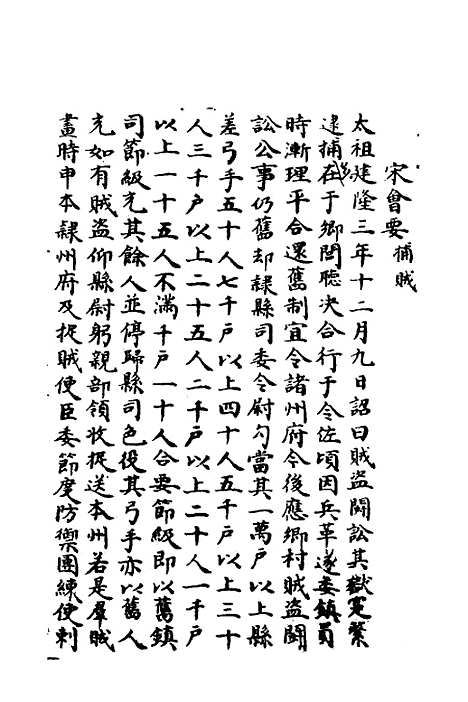 宋會要 捕賊
太祖建隆三年十二月九日詔曰賊盜鬭訟其獄寔繁
逮捕多在于鄉閭聽決合行于令佐頃因兵革遂委鎮員
時漸理平合還舊制宜令諸州府今後應鄉村賊盜鬭
訟公事仍舊却隸縣司委令尉勾當其一萬戶以上縣
差弓手五十人七千戶以上四十人五千戶以上三十
人三千戶以上二十五人二千戶以上二十人一千戶
以上一十五人不滿千戶一十人合要節級即以舊鎮
司節級充其餘人並停歸縣司色役其弓手亦以舊人
充如有賊盜仰縣尉躬親部領收捉送本州若是羣賊
畫時申本隸州府及捉賊使臣委節度防禦團練使刺